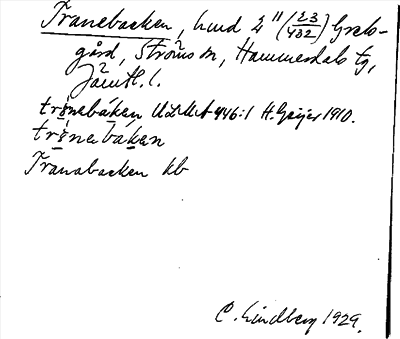 Tranebacken, lund 2/4" (23/432) Grels-
gård, Ströms sn, Hammerdals tg,
Jämtl. l.
trånebaken ULMA 446:1 H. Geijer 1910.
trånebaken
Tranabacken kb
C. Lindberg 1929.